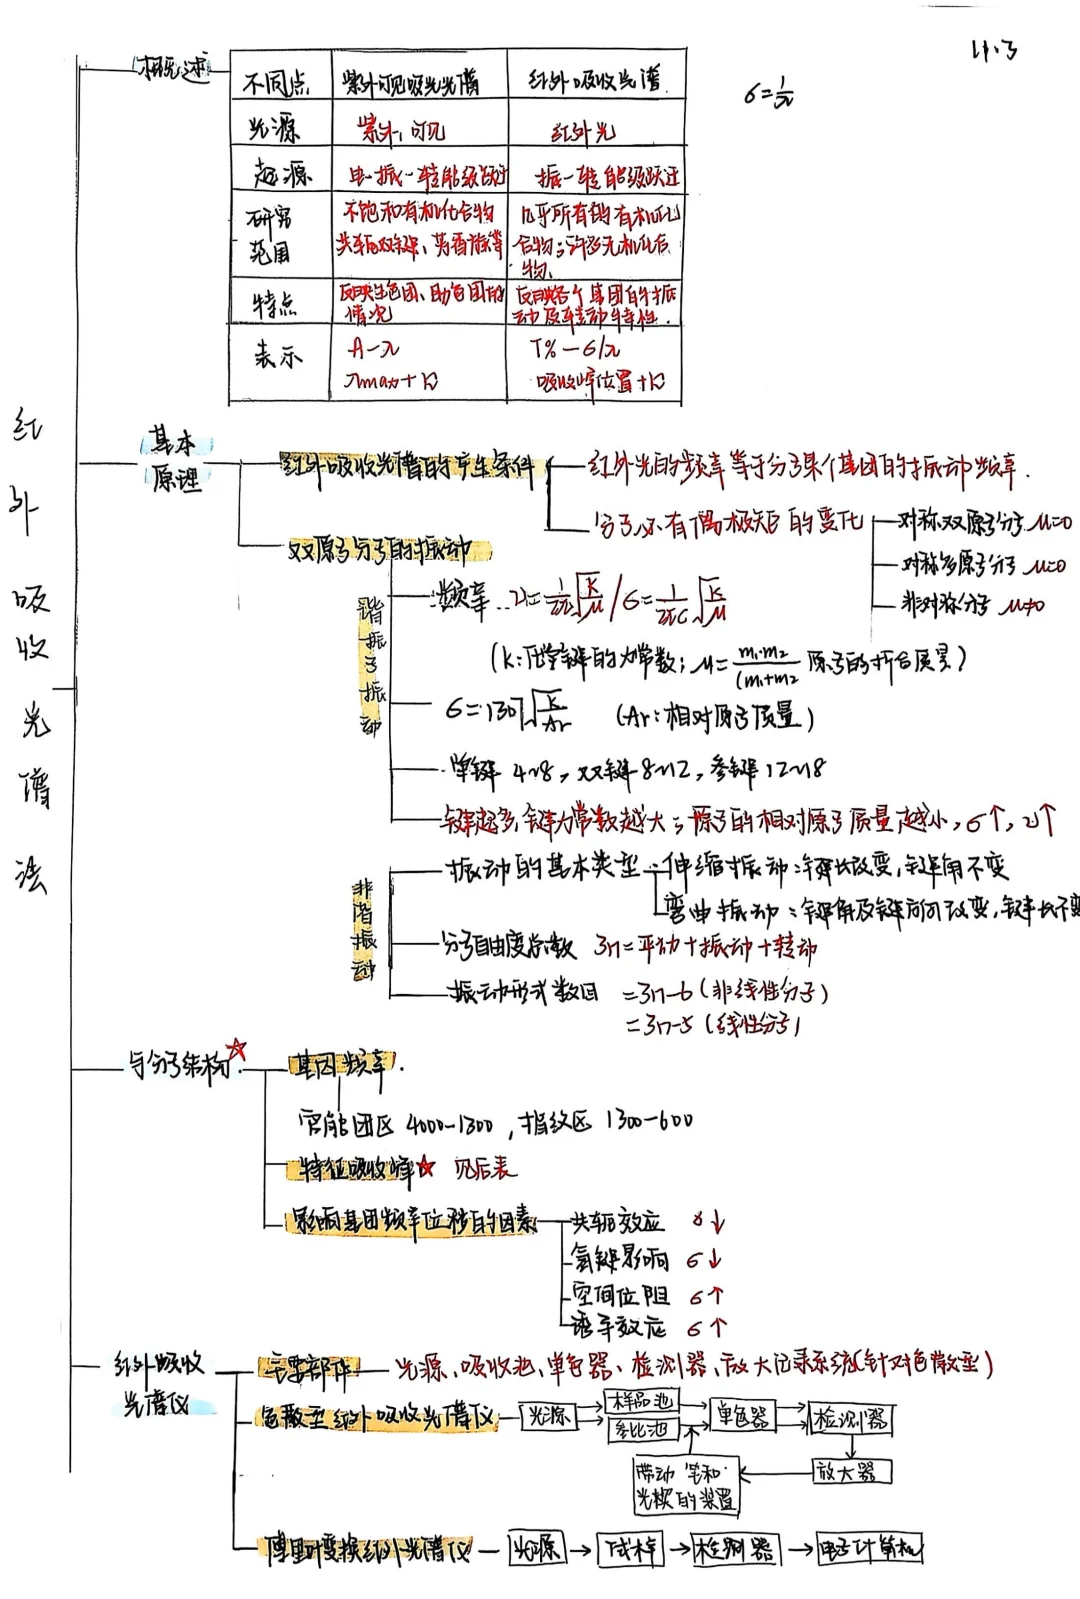 11.3
概述
不同点 紫外可见吸光光谱 红外吸收光谱
σ=1/λ
光源 紫外,可见 红外光
起源 电-振-转能级跃迁 振-转能级跃迁
研究范围 不饱和有机化合物 共轭双键、芳香族等 几乎所有的有机化合物;许多无机化合物.
特点 反映生色团、助色团的情况 反映各个基团的振动及转动特性.
表示 A-λ T%-σ/λ
λmax+K 吸收峰位置+K
红外吸收光谱法
基本原理
红外吸收光谱的产生条件 红外光的频率等于分子某个基团的振动频率.
分子必有偶极矩的变化 对称双原子分子 μ=0
对称多原子分子 μ=0
非对称分子 μ≠0
双原子分子的振动
谐振子振动
频率 ν=1/2π√K/μ / σ=1/2πc√K/μ
(K:化学键的力常数; μ=m₁·m₂/(m₁+m₂ 原子的折合质量)
σ=1307√K/Ar (Ar:相对原子质量)
单键 4~8, 双键 8~12, 叁键 12~18
键越多,键力常数越大;原子的相对原子质量越小,σ↑,ν↑
非谐振动
振动的基本类型 伸缩振动:键长改变,键角不变
弯曲振动:键角及键方向改变,键长不变
分子自由度总数 3n=平动+振动+转动
振动形式数目 =3n-6(非线性分子)
=3n-5(线性分子)
与分子结构.☆
基团频率.
官能团区 4000-1300,指纹区 1300-600
特征吸收峰☆ 见后表
影响基团频率位移的因素 共轭效应 σ↓
氢键影响 σ↓
空间位阻 σ↑
诱导效应 σ↑
红外吸收光谱仪
主要部件 光源、吸收池、单色器、检测器、放大记录系统(针对色散型)
色散型红外吸收光谱仪 光源 样品池 参比池 单色器 检测器
放大器
带动笔和光楔的装置
傅里叶变换红外光谱仪 光源→试样→检测器→电子计算机